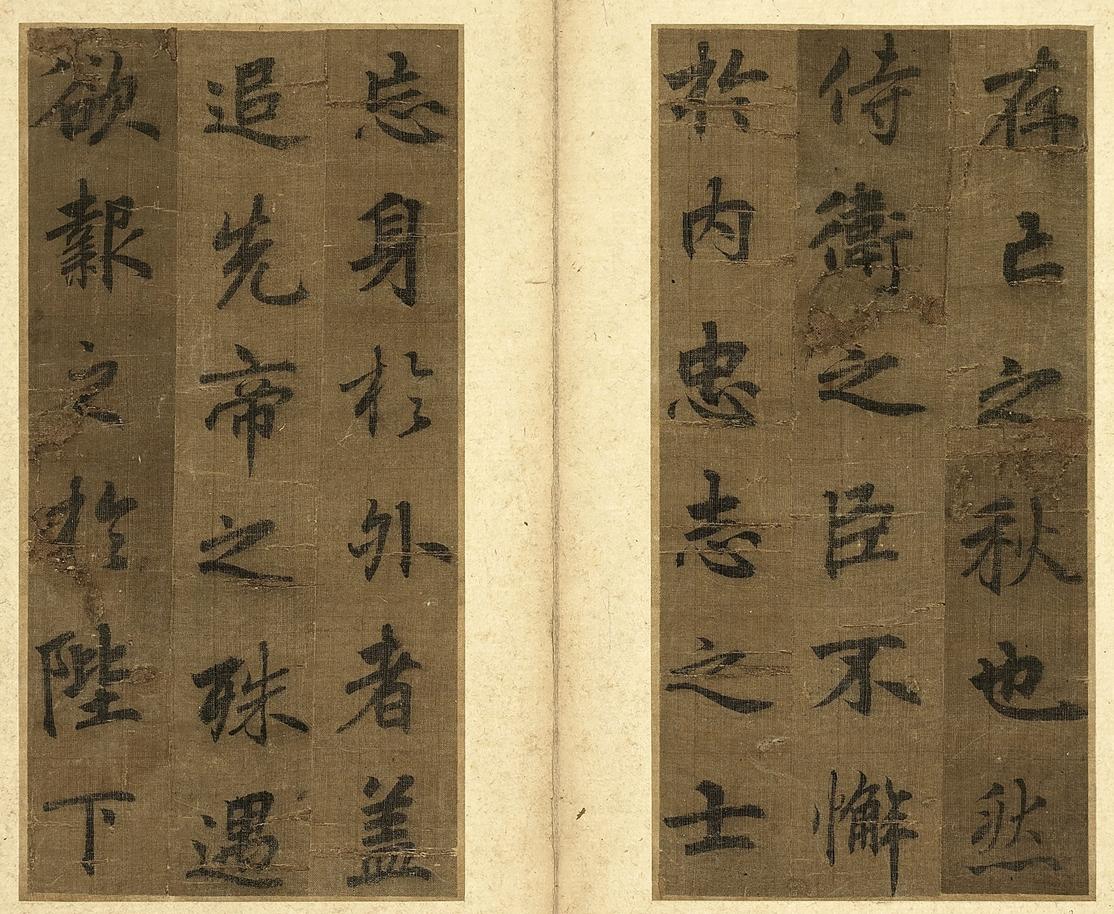 存亡之秋也然
侍衛之臣不懈
於内忠志之士
忘身於外者盖
追先帝之殊遇
欲報之於陛下